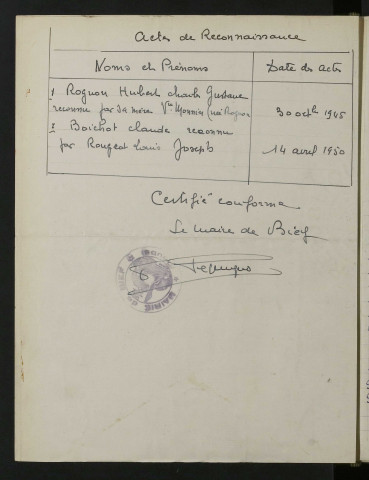 Actes de Reconnaissance
Noms et Prénoms Date des actes
1 Rognon Hubert Charles Gustave
reconnu par sa mère Vve Monnin (née Rognon 30 octb 1945
2 Boichot Claude reconnu
par Rougeot Louis Joseph 14 avril 1950
Certifié conforme
Le Maire de Bief
MAIRIE